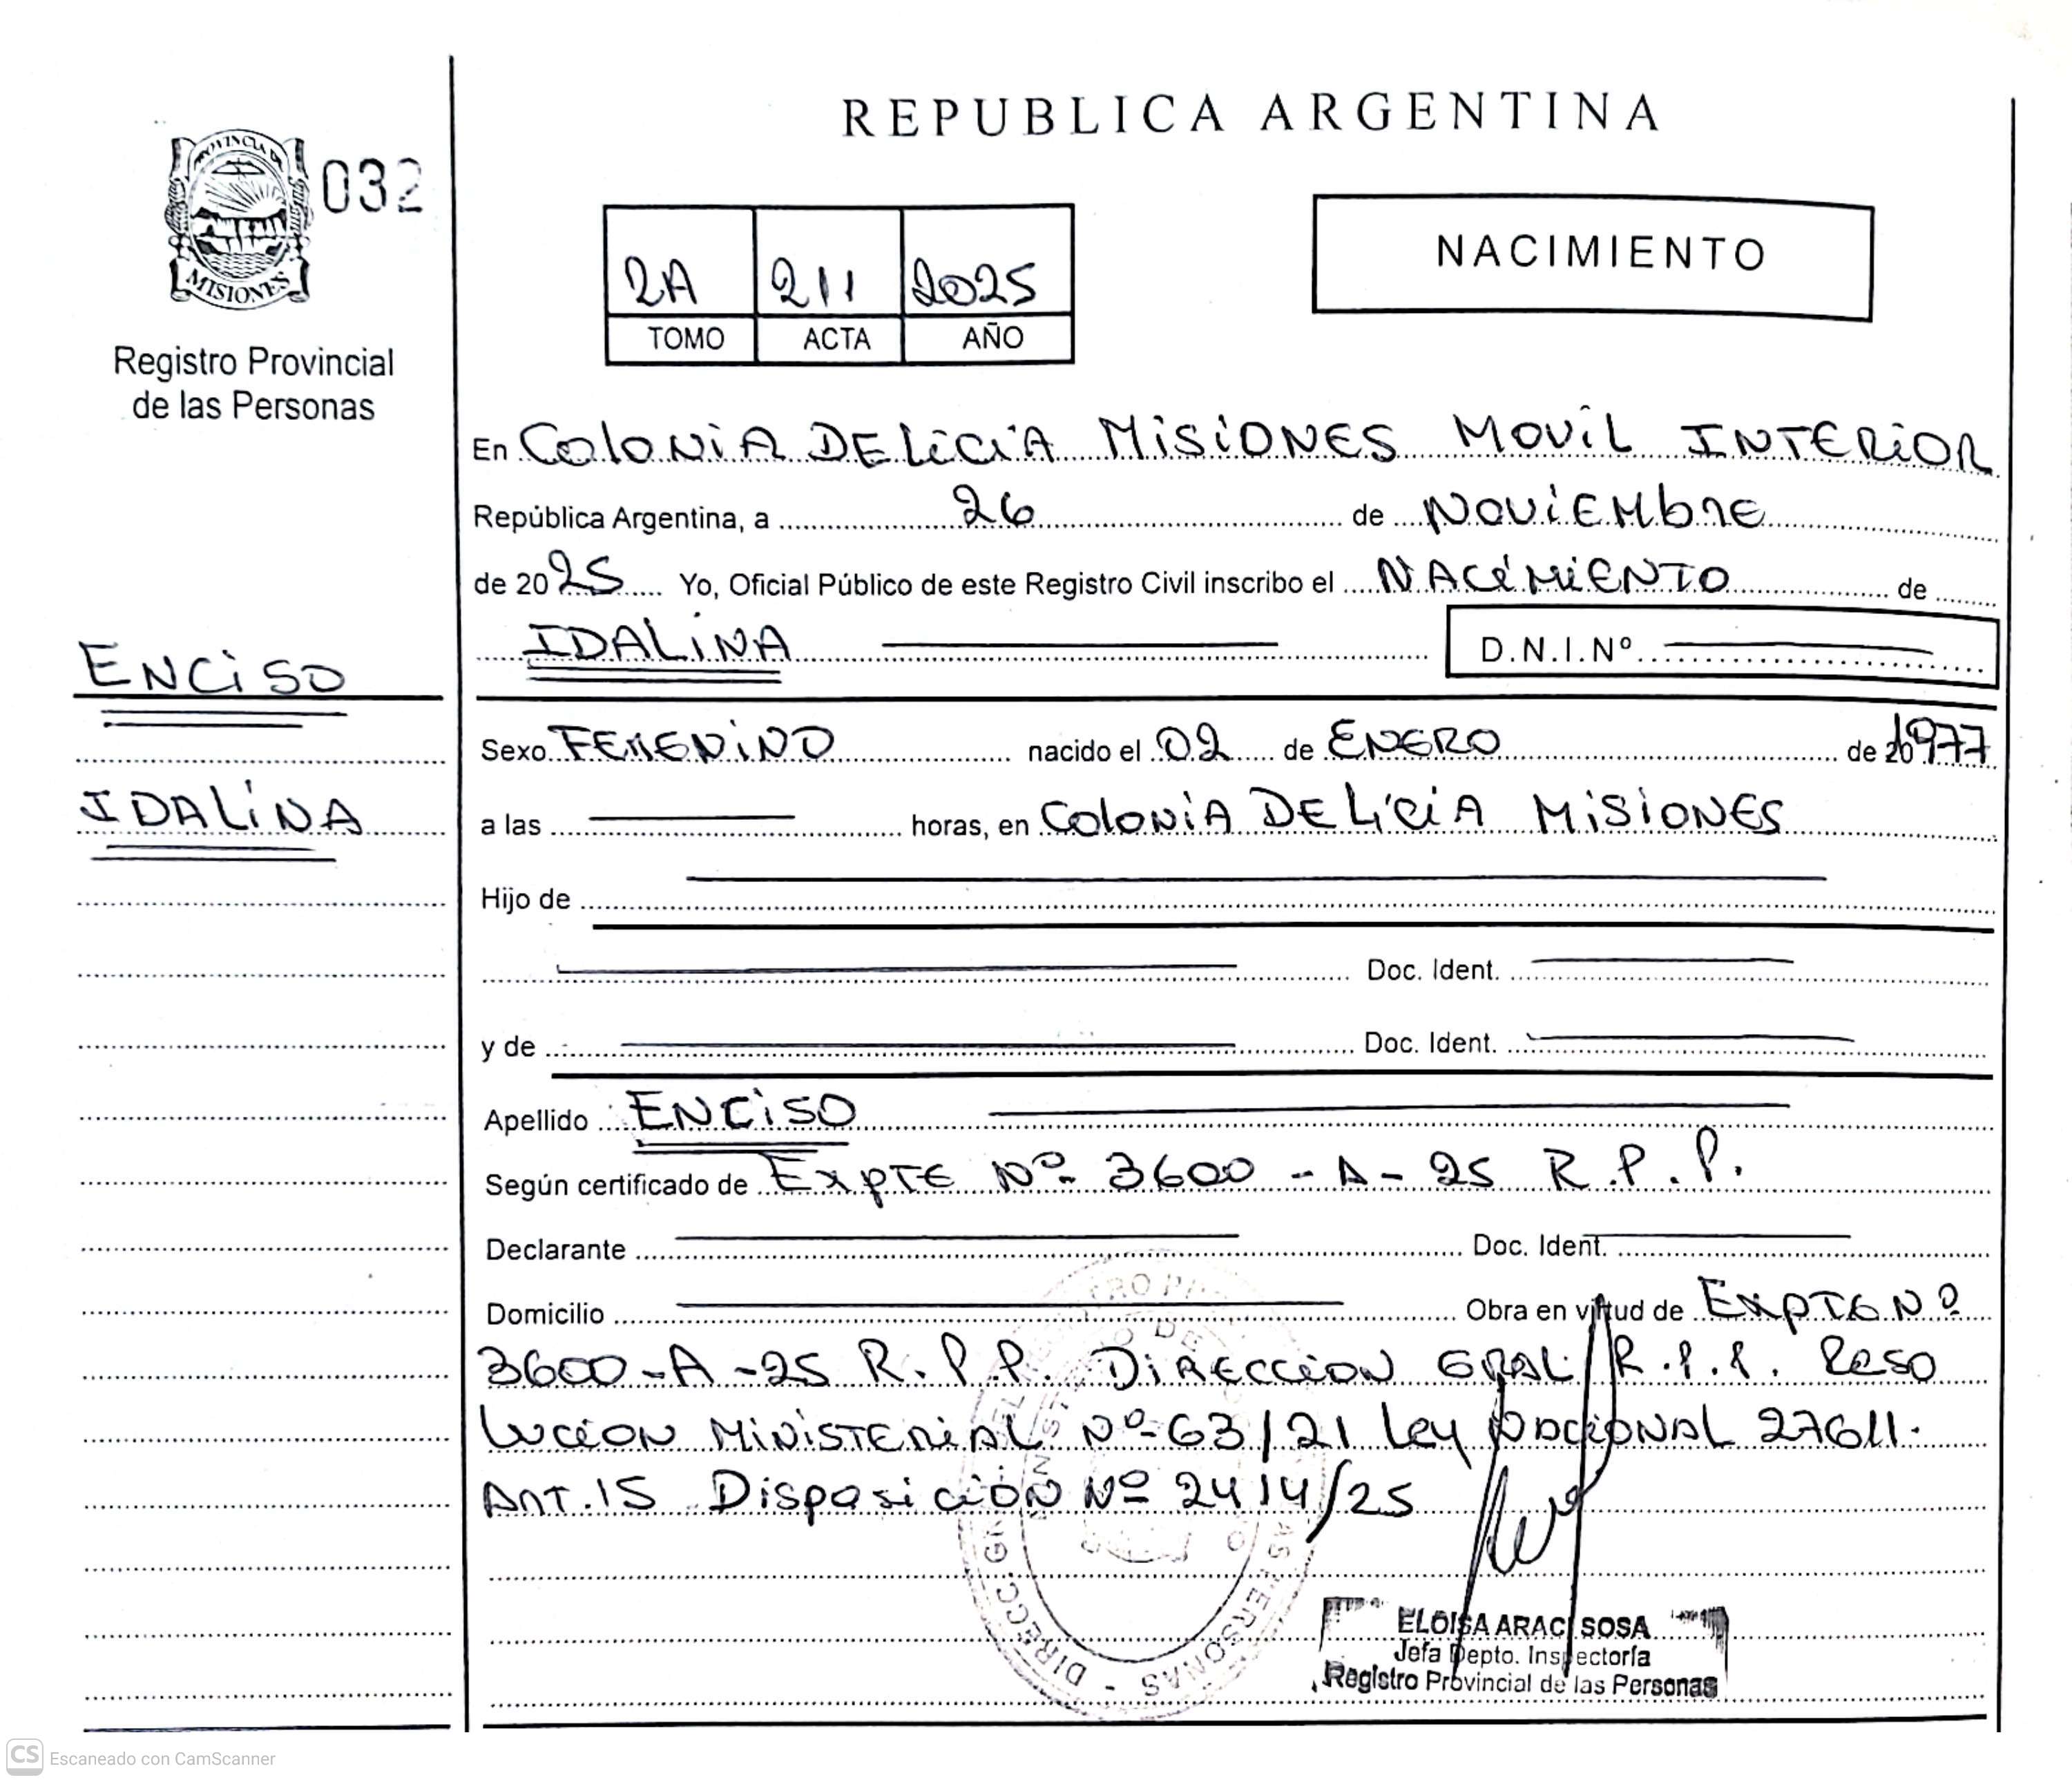 REPUBLICA ARGENTINA
PROVINCIA DE
MISIONES
032
Registro Provincial
de las Personas
2A 211 2025
TOMO ACTA AÑO
NACIMIENTO
En COLONIA DELICIA MISIONES MOVIL INTERIOR
República Argentina, a 26 de NOVIEMbre
de 2025 Yo, Oficial Público de este Registro Civil inscribo el NACIMIENTO de
IDALINA D.N.I.Nº
ENCISO
Sexo FEMENINO nacido el 02 de ENERO de 1977
IDALINA
a las horas, en COLONIA DELICIA MISIONES
Hijo de
Doc. Ident.
y de Doc. Ident.
Apellido ENCISO
Según certificado de EXPTE Nº 3600 - A - 25 R.P.P.
Declarante Doc. Ident.
Domicilio Obra en virtud de EXPTE Nº
3600-A-25 R.P.P. DIRECCION GRAL R.P.P. RESO
LUCION MINISTERIAL Nº 63/21 Ley NACIONAL 27611.
ART.15 DISPOSICIÓN Nº 2414/25
ELOISA ARACI SOSA
Jefa Depto. Inspectoría
Registro Provincial de las Personas
CS Escaneado con CamScanner